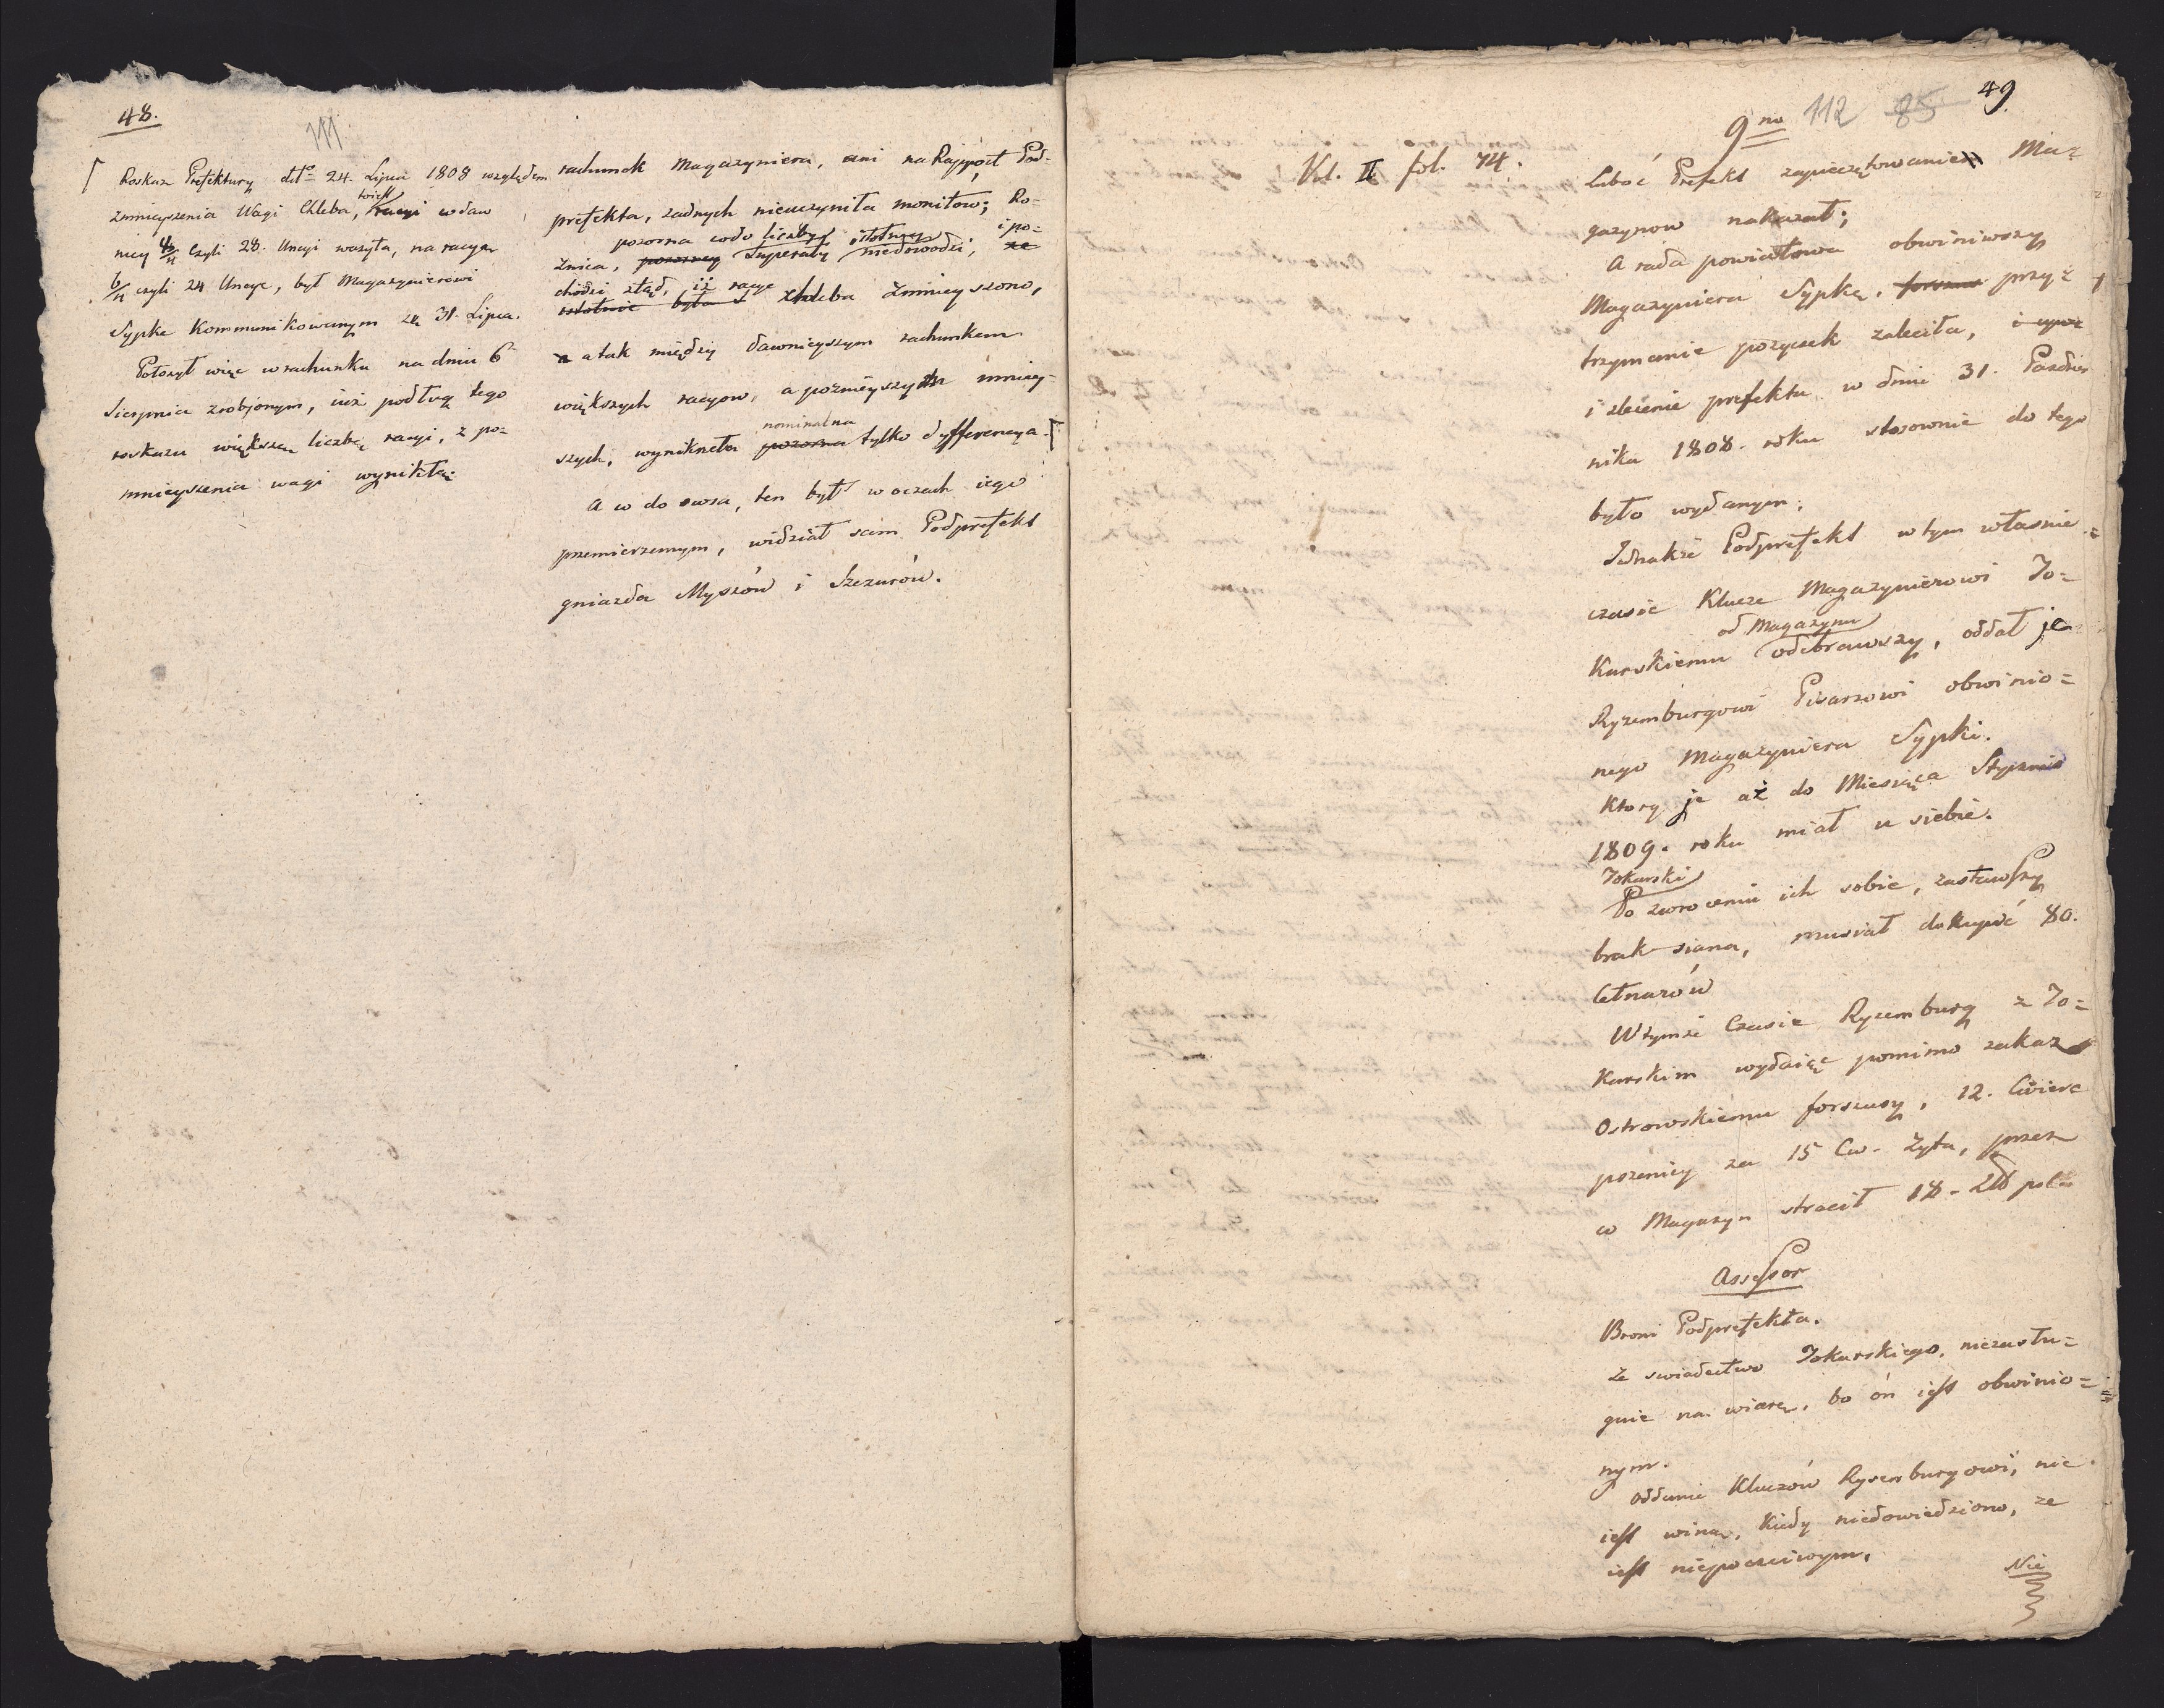 48.
111
Roskaz Prefektury dtto 24. Lipca 1808 względem
zmnieyszenia Wagi Chleba, wdaw
niey czyli 28. Uncyi ważyła, na racyą
czyli 24 Uncye, był Magazynierowi
Sypke Kommunikowanym 31. Lipca.
Położył więc w rachunku na dniu 6
Sierpnia zrobjonym, iuż podług tego
roskazu większą liczbę racyi, z po=
mnieyszenia wagi wynikłą.
rachunek Magazyniera, ani na Rapport Pod-
prefekta, żadnych nieuczyniła monitow; Ro=
pozorna co do liczby istotney i po=
żnica, pozorney Superaty niedowodzi, że
chodzi ztąd, iż racye
istotnie była chleba zmnieyszono,
a tak między dawnieyszym rachunkem
większych racyow, a poznieyszych mniey-
nominalna
szych, wyniknęła pozorna tylko dyfferencya.
A w do owsa, ten był w oczach iego
przemierzemym, widział sam Podprefekt
gniazda Myszów i Szczurów.
49
9no 112 85
Vol. II fol. 74.
Luboć Prefekt zapieczętowanie Ma=
gazynow nakazał;
A rada powiatowa obwiniwszy
Magazyniera Sypkę, przy=
trzymanie pożyczek zaleciła,
i zlecenie prefekta w dniu 31. Pazdzier
nika 1808. roku stosownie do tego
było wydanym;
Jednakże Podprefekt w tym własnie
czasie Klucze Magazynierowi To=
od Magazynu
Karskiemu odebrawszy, oddał je
Ryzemburgowi Pisarzowi obwinio=
nego Magazyniera Sypki.
Ktory je aż do Miesiąca Stycznia
1809. roku miał u siebie.
Tokarski
Po zwroceniu ich sobie, zastawszy
brak siana, musiał dokupić 80.
Cetnarów
W tymże Czasie Ryzemburg z To=
Karskim wydaiąc pomimo zakaz
Ostrowskiemu forszusy, 12. Cwierc
pszenicy za 15 Cw. Zyta, przez
w Magazyn stracił 18.
Assessor
Broni Podprefekta.
Że swiadectwo Tokarskiego, niezasłu=
guie na wiarę, bo ón iest obwinio=
nym.
Oddanie Kluczów Ryzemburgowi, nie
iest winą, kiedy niedowiedziono, że
iest niepoczciwym.
Nie